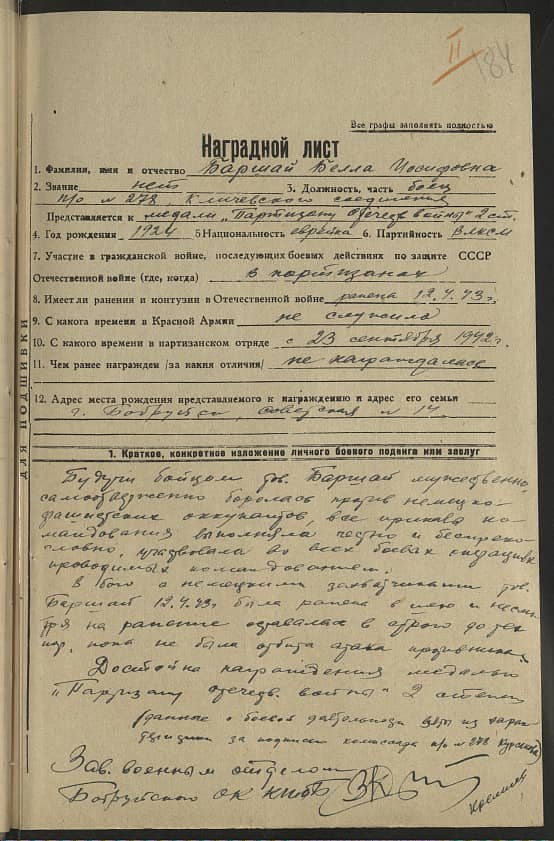 II
184
Все графы заполнять полностью
Наградной лист
1. Фамилия, имя и отчество Баршай Белла Иосифовна
2. Звание нет 3. Должность, часть боец
п/о № 278, Кличевского соединения
Представляется к медали „Партизану отечеств. войны" 2 ст.
4. Год рождения 1924 5 Национальность еврейка 6. Партийность ВЛКСМ
7. Участие в гражданской войне, последующих боевых действиях по защите СССР
Отечественной войне (где, когда) в партизанах
8. Имеет ли ранения и контузии в Отечественной войне ранена 12.4.43 г.
9. С какого времени в Красной Армии не служила
10. С какого времени в партизанском отряде с 23 сентября 1942 г.
11. Чем ранее награжден /за какия отличия/ не награждалась
12. Адрес места рождения представляемого к награждению и адрес его семьи
г. Бобруйск, Советская № 14
ДЛЯ ПОДШИВКИ
1. Краткое, конкретное изложение личного боевого подвига или заслуг
Будучи бойцом тов. Баршай мужественно,
самоотверженно боролась против немецко-
фашистских оккупантов, все приказы ко-
мандования выполняла честно и беспреко-
словно, участвовала во всех боевых операциях
проводимых командованием.
В бою с немецкими захватчиками тов.
Баршай 12.4.43 г. была ранена в шею и несмо-
тря на ранение оставалась в строю до тех
пор, пока не была отбита атака противника.
Достойна награждения медалью
„Партизану отечеств. войны" 2 степени
(данные о боевой деятельности взяты из харак-
теристики за подписью командира п/о № 278 Курсков)
Зав. военным отделом
Бобруйского ОК КП(б)Б